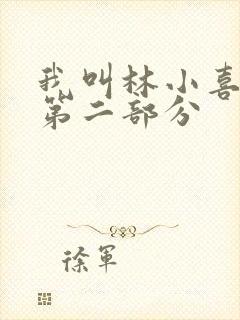 我叫林小喜
第二部分
徐军